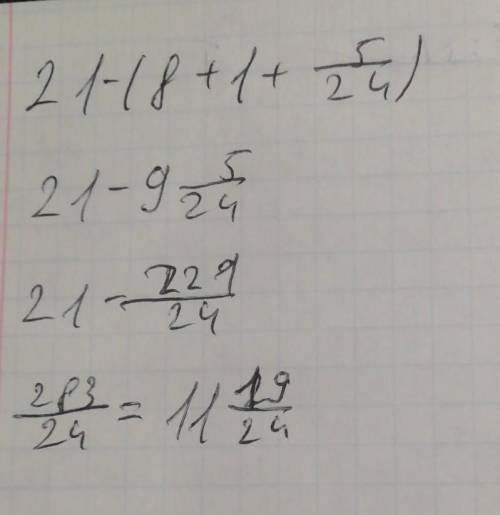 21-(8+1+ 5/24)
21-9 5/24
21-229/24
283/24 = 11 19/24